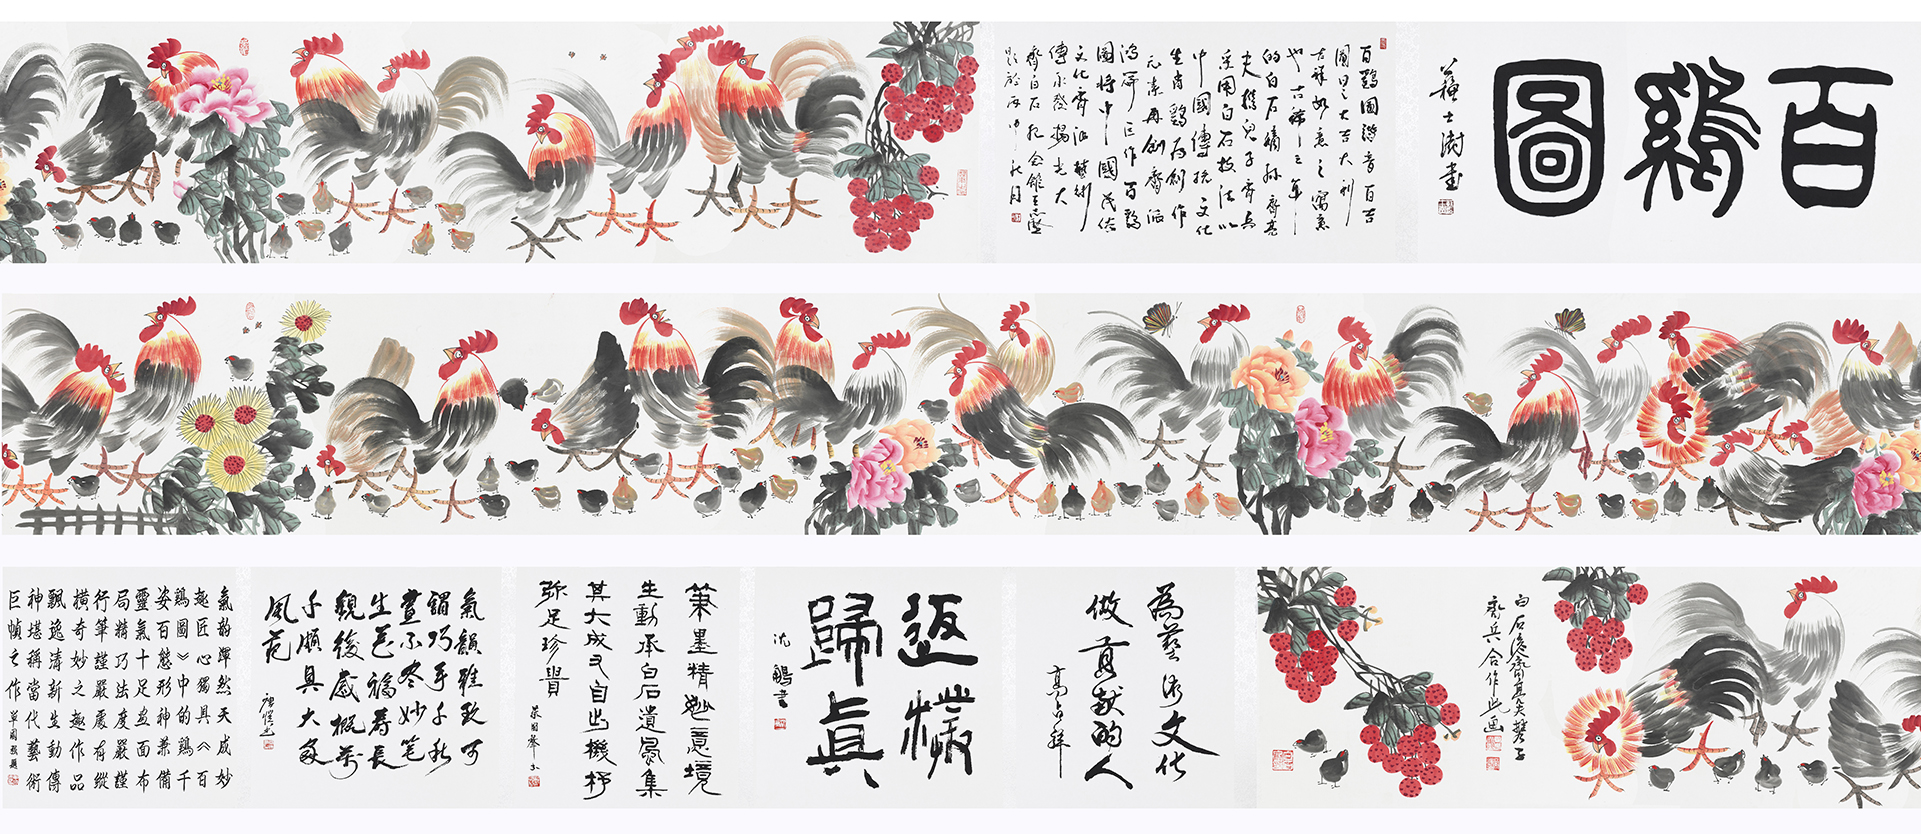 百鷄圖
蘇士澍書
百鷄圖諧音百吉
吉祥如意之寓意
也古稀之年
的白石嫡孫齊
夫携兒子齊兵
采用白石技法以
中國傳統文化
生肖鷄为創作
元素再創齊派
鴻篇巨作百鷄
圖將中國民俗
文化齊派藝術
傳承發揚光大
齊白石紀念館王志
題於丙申秋月
白石後裔
齊兵合作此画
為藝術文化
做貢献的人
高占祥
返樸
歸真
沈鵬書
筆墨精意境
生動承白石遺風集
其大成又自出機杼
弥足珍貴
氣韻雅致可
謂巧手千秋
畫不尽妙笔
生花福壽長
觀後感概万
千頗具大家
風范
氣韵渾然天成妙
趣匠心獨具《百
鷄圖》中的鷄千
姿百態形神兼備
靈氣十足畫面布
局精巧法度嚴謹
行筆謹嚴處有縱
橫奇妙之趣作品
飄逸清新生動傳
神堪稱當代藝術
巨幀之作 單國强題